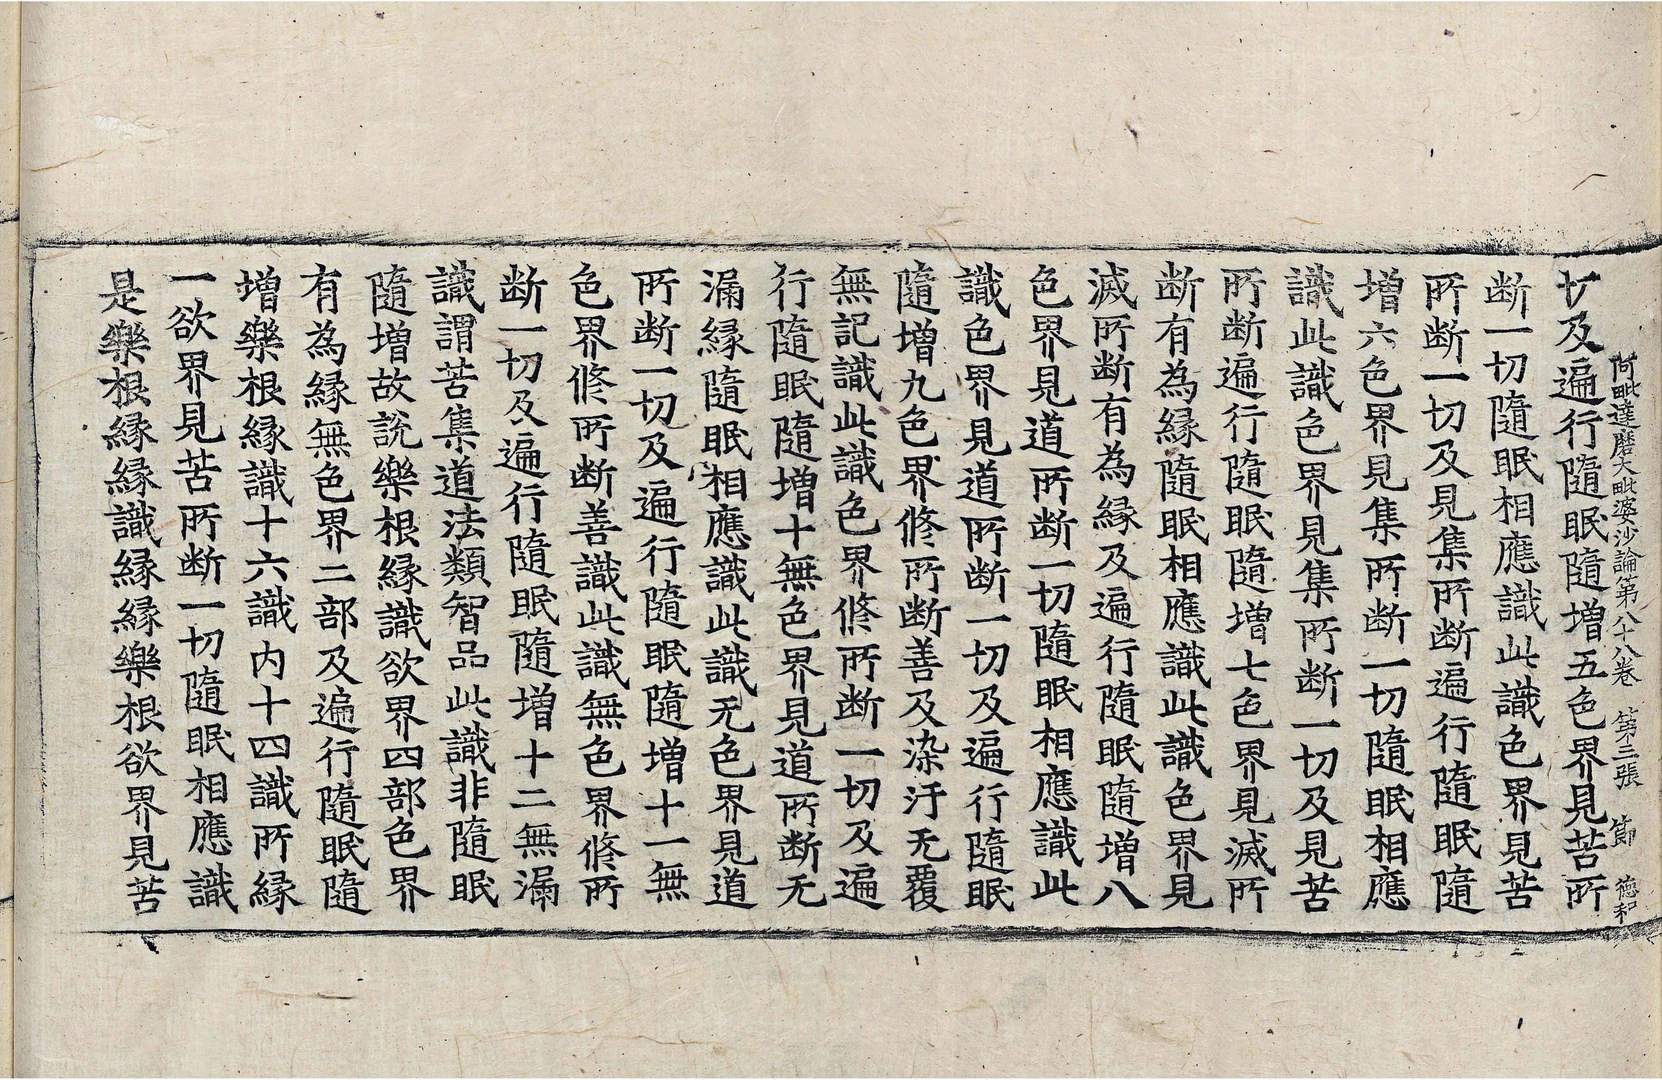 阿毗達磨大毗婆沙論第八十八卷　第三張　節　德和
廿及遍行隨眠隨增五色界見苦所
斷一切隨眠相應識此識色界見苦
所斷一切及見集所斷遍行隨眠隨
增六色界見集所斷一切隨眠相應
識此識色界見集所斷一切及見苦
所斷遍行隨眠隨增七色界見滅所
斷有為緣隨眠相應識此識色界見
滅所斷有為緣及遍行隨眠隨增八
色界見道所斷一切隨眠相應識此
識色界見道所斷一切及遍行隨眠
隨增九色界修所斷善及染汙无覆
無記識此識色界修所斷一切及遍
行隨眠隨增十無色界見道所斷无
漏緣隨眠相應識此識无色界見道
所斷一切及遍行隨眠隨增十一無
色界修所斷善識此識無色界修所
斷一切及遍行隨眠隨增十二無漏
識謂苦集道法類智品此識非隨眠
隨增故說樂根緣識欲界四部色界
有為緣無色界二部及遍行隨眠隨
增樂根緣識十六識內十四識所緣
一欲界見苦所斷一切隨眠相應識
是樂根緣緣識緣緣樂根欲界見苦